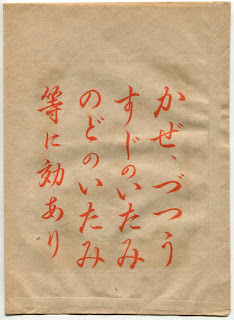 かぜ、づつう
すじのいたみ
のどのいたみ
等に効あり